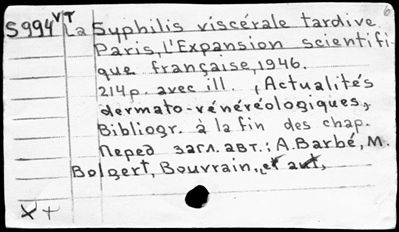 S994 VT La Syphilis viscérale tardive.
Paris, l'Expansion scientifi-
que française, 1946.
214 p. avec ill. , Actualités
dermato-vénéréologiques,
Bibliogr. à la fin des chap.
Перед загл. авт.: A. Barbé, M.
Bolgert, Bouvrain, et aut,
X+
6